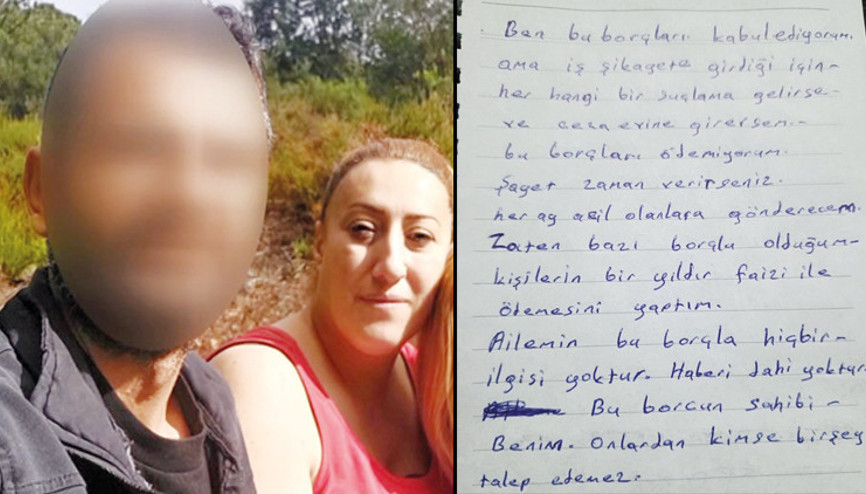 Ben bu borçları kabulediyorum.
ama iş şikayete girdiği için-
her hangi bir suçlama gelirse-
ve ceza evine girersem.-
bu borçları ödemiyorum.
şayet zaman verirseniz.
her ay acil olanlara göndereceem.
Zaten bazı borçlu olduğum-
kişilerin bir yıldır faizi ile
ödemesini yaptım.
Ailemin bu borçla hiçbir-
ilgisi yoktur. Haberi dahi yoktur.
Bu borcun sahibi-
Benim. Onlardan kimse birşey
talep edemez.